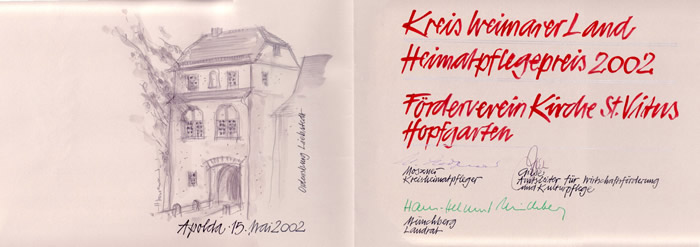 Apolda · 15. Mai 2002
Kreis Weimarer Land
Heimatpflegepreis 2002
Förderverein Kirche St. Vitus
Hopfgarten
Moszner
Kreisheimatpfleger
Amtsleiter für Wirtschaftsförderung
und Kulturpflege
Hans-Helmut Münchberg
Münchberg
Landrat